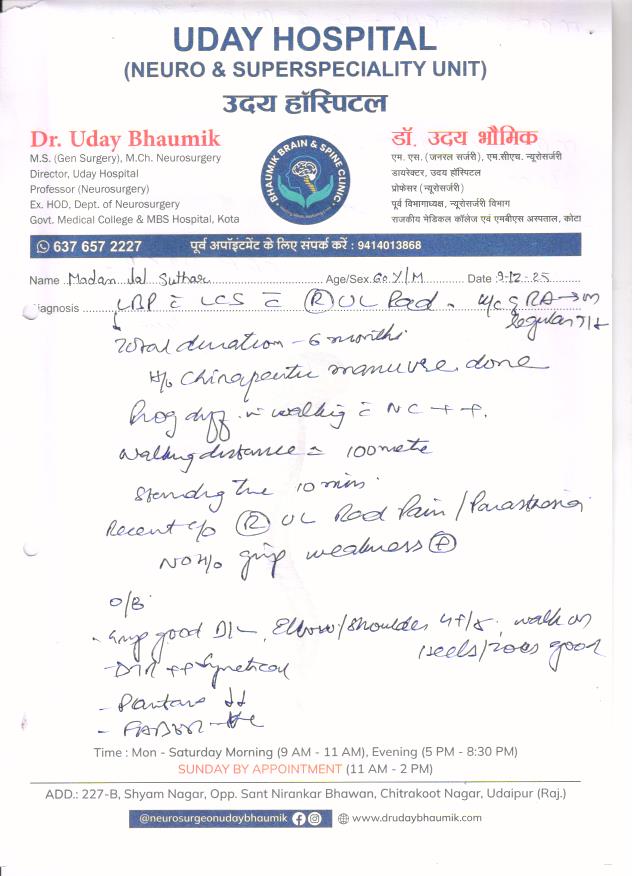 UDAY HOSPITAL
(NEURO & SUPERSPECIALITY UNIT)
उदय हॉस्पिटल
Dr. Uday Bhaumik
M.S. (Gen Surgery), M.Ch. Neurosurgery
Director, Uday Hospital
Professor (Neurosurgery)
Ex. HOD, Dept. of Neurosurgery
Govt. Medical College & MBS Hospital, Kota
BHAUMIK BRAIN & SPINE CLINIC
डॉ. उदय भौमिक
एम. एस. (जनरल सर्जरी), एम.सीएच. न्यूरोसर्जरी
डायरेक्टर, उदय हॉस्पिटल
प्रोफेसर (न्यूरोसर्जरी)
पूर्व विभागाध्यक्ष, न्यूरोसर्जरी विभाग
राजकीय मेडिकल कॉलेज एवं एमबीएस अस्पताल, कोटा
637 657 2227 पूर्व अपॉइंटमेंट के लिए संपर्क करें : 9414013868
Name Madan Lal Suthar Age/Sex 60 Y/M Date 9-12-25
Diagnosis LBP c̄ LCS c̄ (R) UL Rad. RA → on
regular
Total duration - 6 months
H/o Chiropractic manuvre done
Prog diff. in walking c̄ NC ++.
Walking distance = 100 mete
Standing time 10 min.
Recent c/o (R) UL Rad Pain / Parasthesia
No H/o grip weakness
grip good B/L, Elbow/shoulder 4+/5, walk on
Heels/Toes good
- DTR ++ Symetrical
-
- FABER
Time : Mon - Saturday Morning (9 AM - 11 AM), Evening (5 PM - 8:30 PM)
SUNDAY BY APPOINTMENT (11 AM - 2 PM)
ADD.: 227-B, Shyam Nagar, Opp. Sant Nirankar Bhawan, Chitrakoot Nagar, Udaipur (Raj.)
@neurosurgeonudaybhaumik www.drudaybhaumik.com